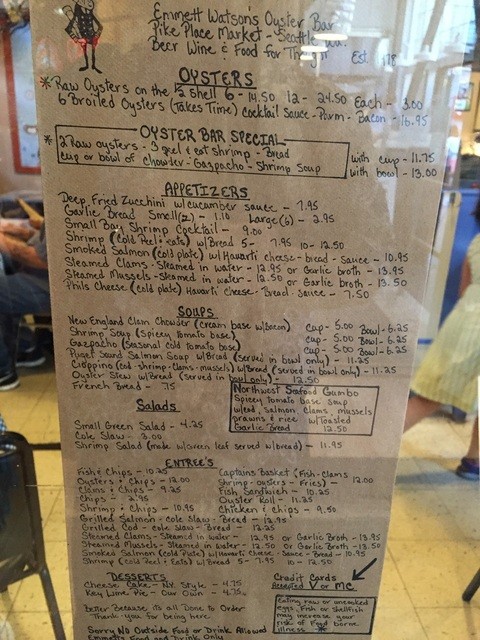 Emmett Watson's Oyster Bar
Pike Place Market - Seattle Wa.
Beer Wine & Food for
Est.
OYSTERS
* Raw Oysters on the ½ Shell 6 - 14.50 12 - 24.50 Each - 3.00
6 Broiled Oysters (Takes Time) Cocktail Sauce - Parm - Bacon - 16.95
OYSTER BAR SPECIAL
* 2 Raw oysters - 3 peel & eat shrimp - Bread
cup or bowl of chowder - Gazpacho - Shrimp Soup
with cup - 11.75
with bowl - 13.00
APPETIZERS
Deep Fried Zucchini w/cucumber sauce - 7.95
Garlic Bread Small(2) - 1.10 Large(6) - 2.95
Small Bay Shrimp Cocktail - 9.00
Shrimp (Cold Peel & Eats) w/Bread 5 - 7.95 10 - 12.50
Smoked Salmon (cold plate) w/Havarti cheese - bread - Sauce - 10.95
Steamed Clams - Steamed in water - 12.95 or Garlic broth - 13.95
Steamed Mussels - Steamed in water - 12.50 or Garlic broth - 13.50
Phils Cheese (cold plate) Havarti Cheese - Bread - Sauce - 7.50
SOUPS
New England Clam Chowder (cream base w/Bacon) Cup - 5.00 Bowl - 6.25
Shrimp Soup (Spicey Tomato base) Cup - 5.00 Bowl - 6.25
Gazpacho (Seasonal cold tomato base) Cup - 5.00 Bowl - 6.25
Puget Sound Salmon Soup w/Bread (served in bowl only) - 11.25
Cioppino (cod - shrimp - clams - mussels) w/Bread (served in bowl only) - 11.25
Oyster Stew w/Bread (served in bowl only) - 12.50
French Bread - .75
Northwest Seafood Gumbo
Spicey Tomato base soup
w/cod, salmon, clams, mussels
prawns & rice w/Toasted
Garlic Bread 12.50
Salads
Small Green Salad - 4.25
Cole Slaw - 3.00
Shrimp Salad (made w/Green leaf served w/bread) - 11.95
ENTREE'S
Fish & Chips - 10.25
Oysters & Chips - 12.00
Clams & Chips - 9.25
Chips - 2.95
Shrimp & Chips - 10.95
Captains Basket (Fish - Clams
Shrimp - Oysters - Fries) - 12.00
Fish Sandwich - 10.25
Oyster Roll - 11.25
Chicken & Chips - 9.50
Grilled Salmon - Cole Slaw - Bread - 12.95
Grilled Cod - Cole Slaw - Bread - 12.25
Steamed Clams - Steamed in Water - 12.95 or Garlic Broth - 13.95
Steamed Mussels - Steamed in Water - 12.50 or Garlic Broth - 13.50
Smoked Salmon (cold plate) w/Havarti Cheese - Sauce - Bread - 10.95
Shrimp (Cold Peel & Eats) w/Bread 5 - 7.95 10 - 12.50
DESSERTS
Cheese Cake - N.Y. Style - 4.75
Key Lime Pie - Our Own - 4.75
Credit Cards
Accepted V or MC
Better Because its all Done to Order
Thank-you for being here
Eating raw or uncooked
eggs, fish or shellfish
may increase your
risk of Food borne
illness *
Sorry No Outside Food or Drink Allowed